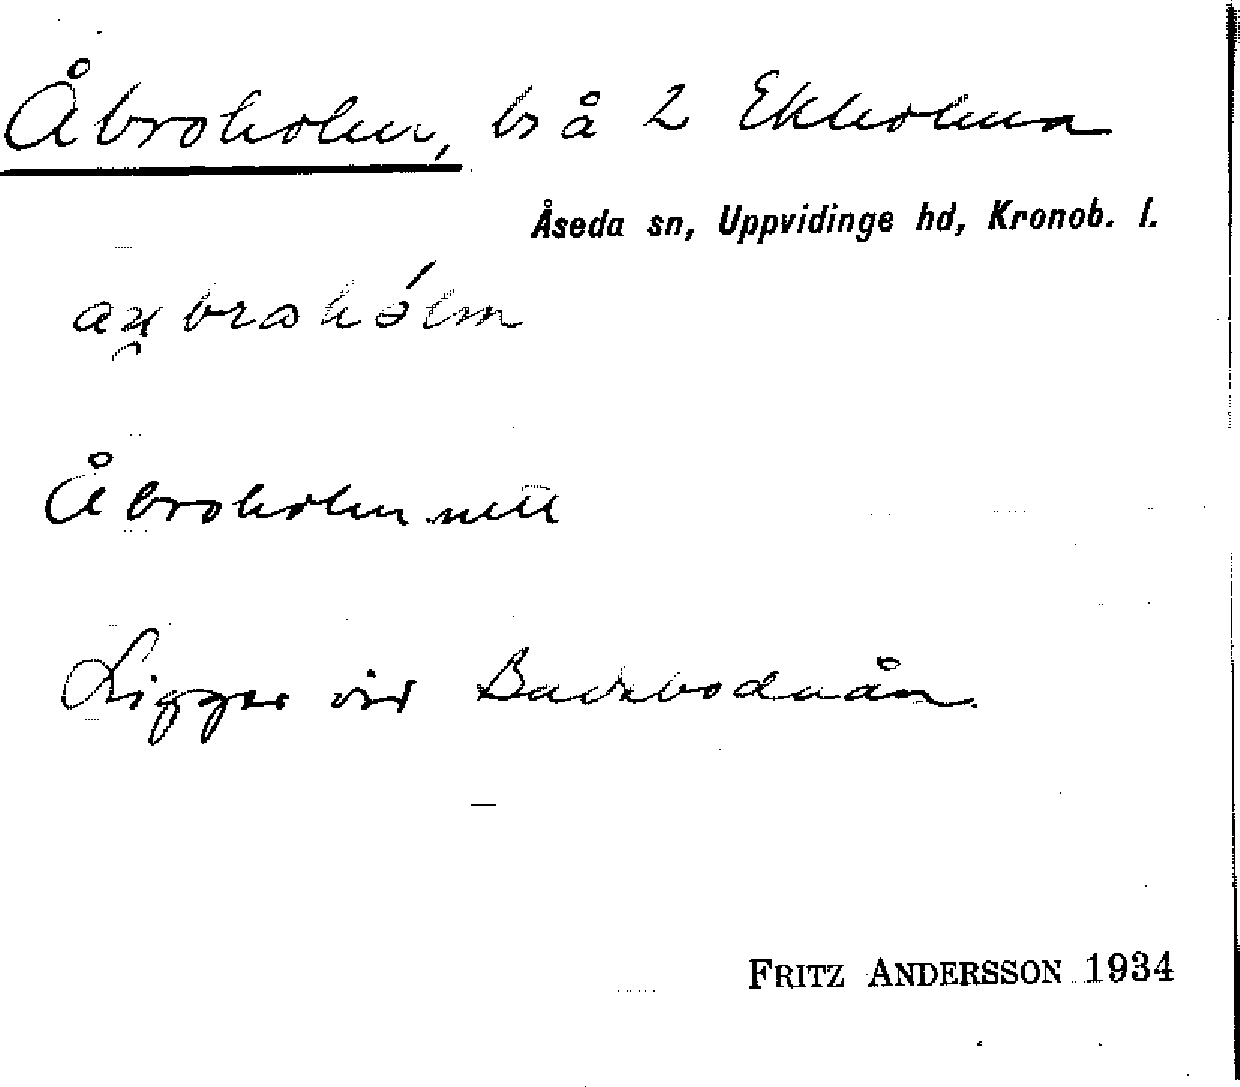 Åbroholm, bs å 2 Ekholma
Åseda sn, Uppvidinge hd, Kronob. l.
Åbroholm
Ligger vid Badebodaån.
FRITZ ANDERSSON 1934